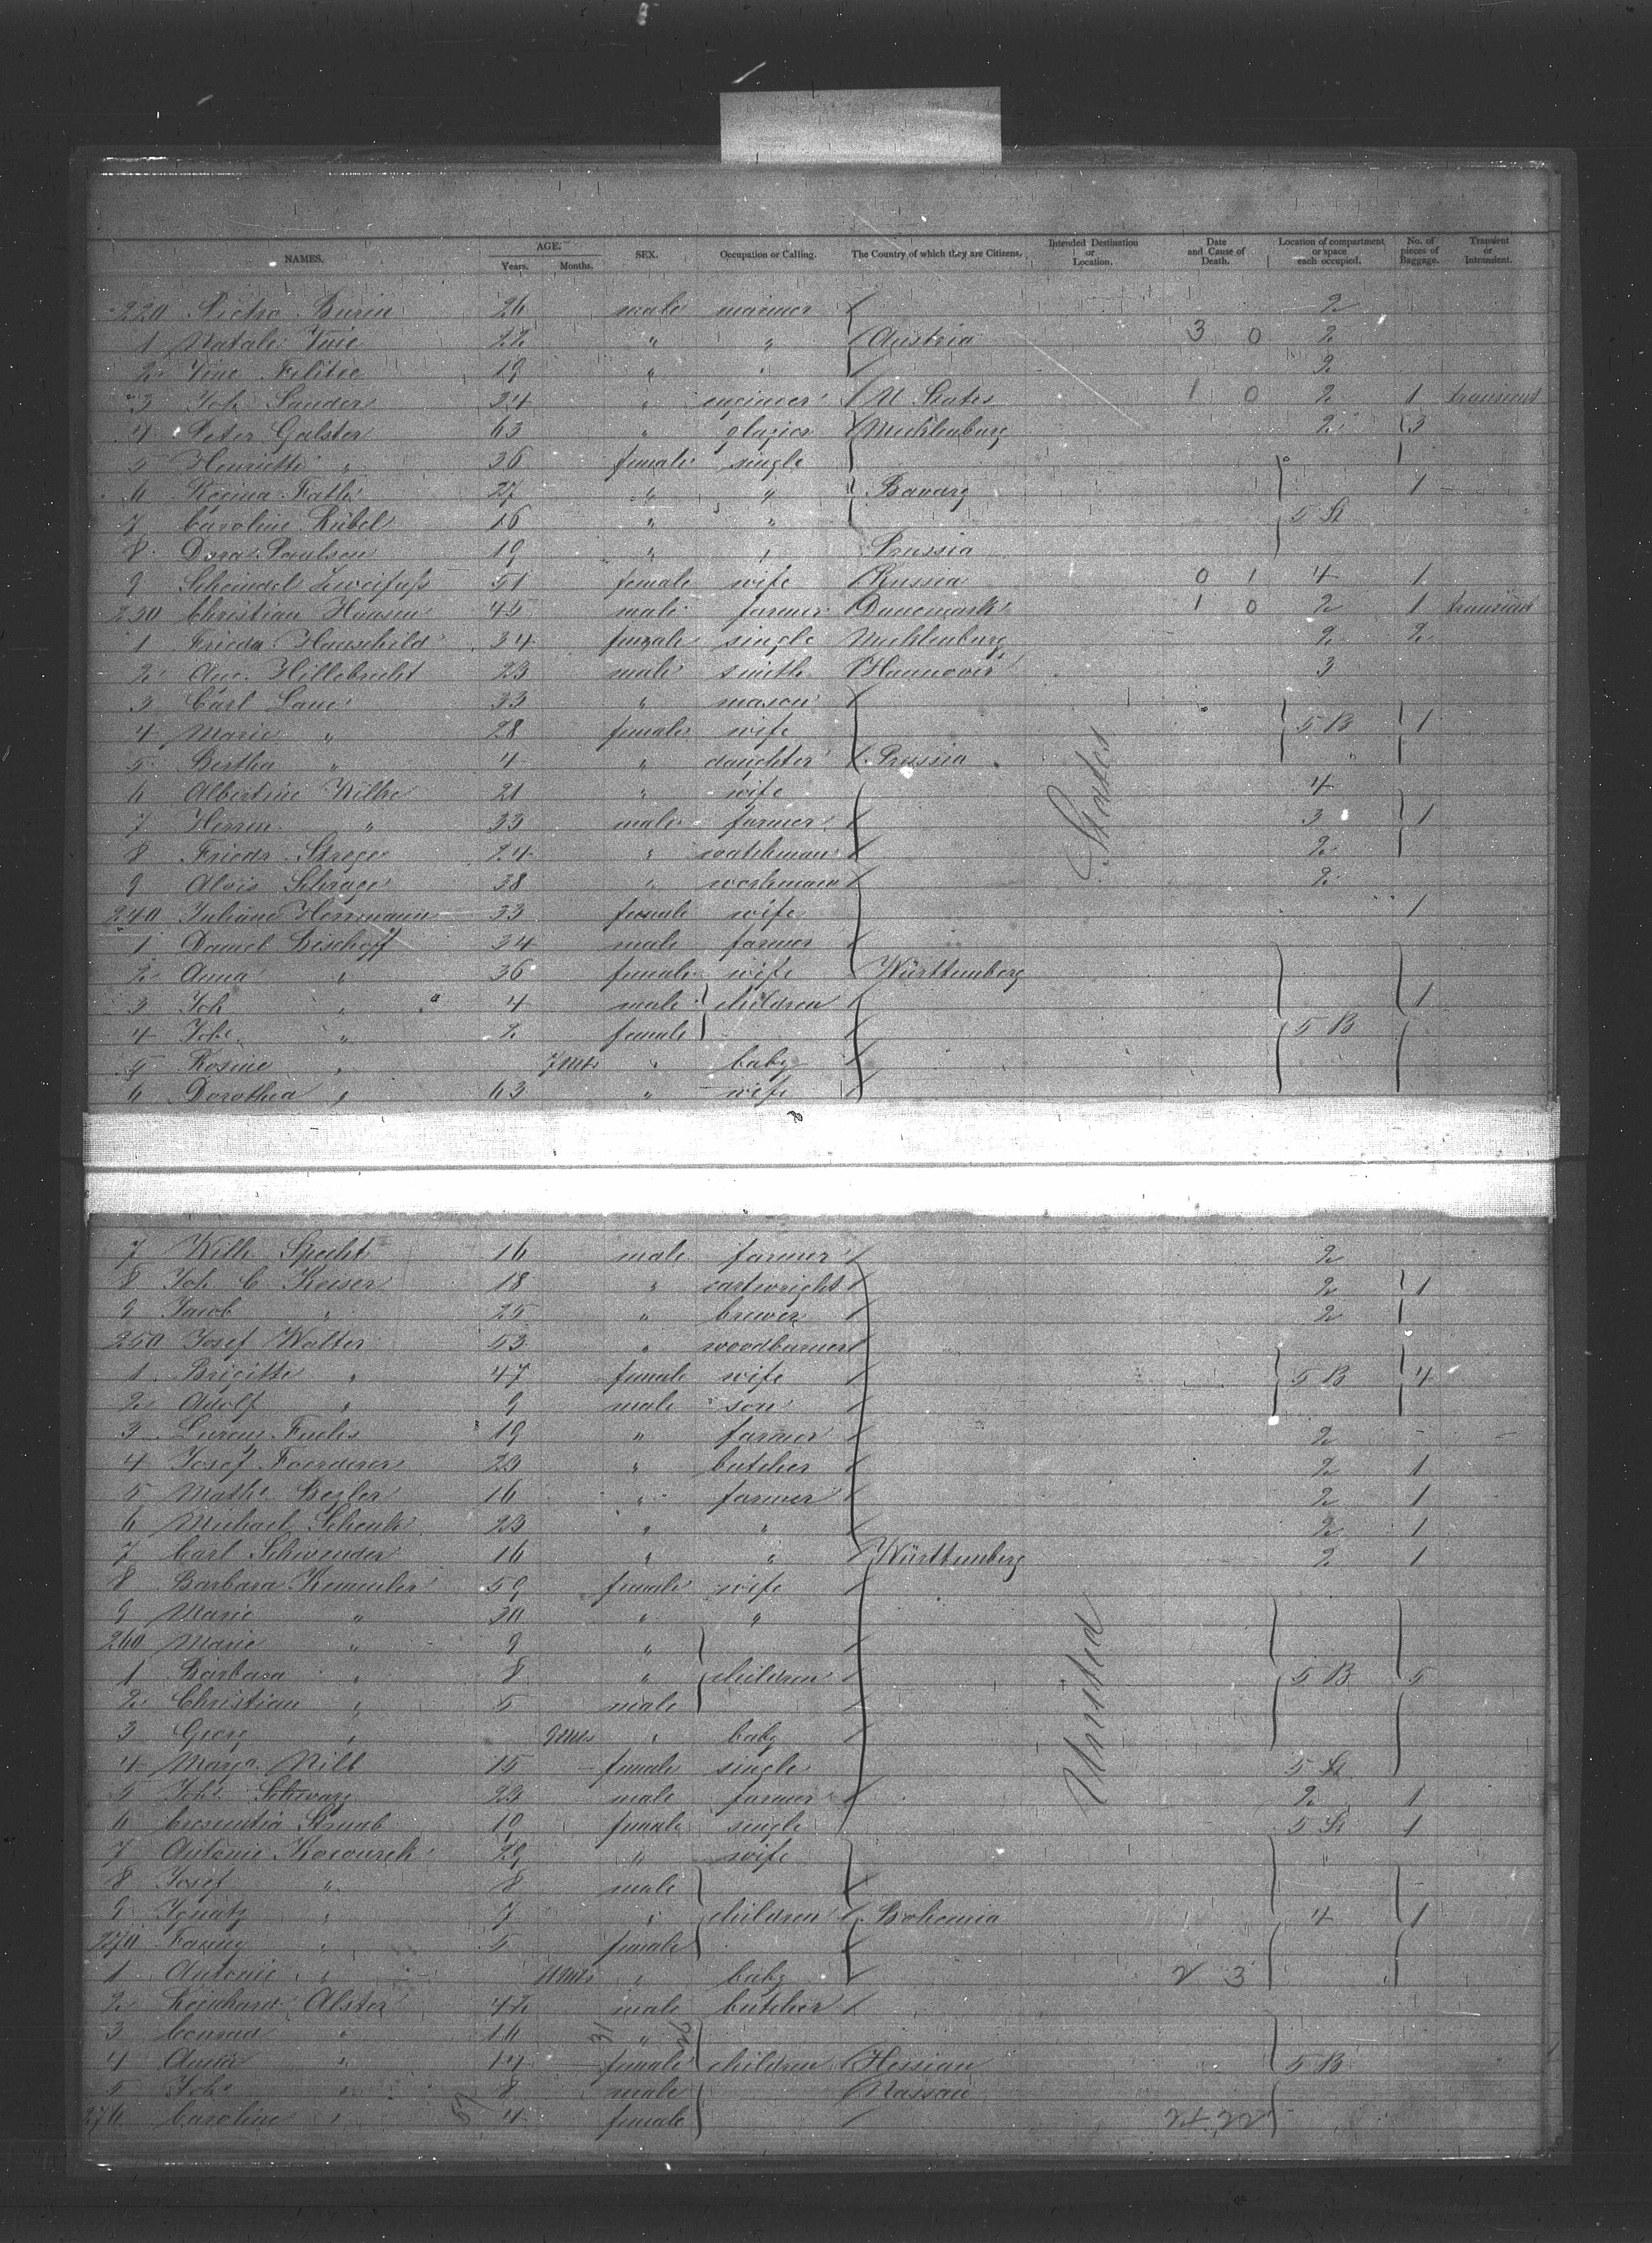 NAMES. AGE. Years. Months. SEX. Occupation or Calling. The Country of which they are Citizens. Intended Destination or Location. Date and Cause of Death. Location of compartment or space each occupied. No. of pieces of Baggage. Transient or Intransient.
220 Pietro Burin 26 male mariner 2
1 Natale 22 " " Austria 3 0 2
2 19 " " 2
3 Joh. Sander 24 " engineer U States 1 0 2 1 transient
4 Peter Galster 63 " glazier Mecklenburg 2 3
5 Henriette " 36 female single
6 Regina Fath 27 " " Bavarg 1
7 Caroline Rübel 16 " " 5 St
8 Dora Paulsen 19 " " Prussia
9 Scheindel Zweifuss 51 female wife Russia 0 1 4 1
230 Christian Hansen 45 male farmer Danemark 1 0 2 1 transient
1 Frieda Hauschild 34 female single Mecklenburg 2 2
2 Aug. Hillebrecht 23 male smith Hannover 3
3 Carl Lane 33 " mason
4 Marie " 28 female wife 5 B 1
5 Bertha " 4 " daughter Prussia "
6 Albertine Wilke 21 " wife 4
7 Herrm. " 33 male farmer 3 1
8 Friedr. Strege 24 " watchman 2
9 Alois Schrage 38 " workman 2
240 Juliane Herrmann 33 female wife 1
1 Daniel Bischoff 34 male farmer
2 Anna " 36 female wife Württemberg
3 Joh " 4 male children 1
4 Johe " 2 female 5 B
5 Rosine " 7 Mts " baby
6 Dorothea " 63 " wife
7 Wilh. Specht 16 male farmer 2
8 Joh. C. Keiser 18 " cartwright 2 1
9 Jacob " 25 " brewer 2
250 Josef Walter 53 " woodburner
1 Brigitte " 47 female wife 5 B 4
2 Adolf " 9 male son
3 Fuchs 19 " farmer 2
4 Josef Foerderer 23 " butcher 2 1
5 Maths. Bezler 16 " farmer 2 1
6 Michael Schenk 23 " " 2 1
7 Carl Schwender 16 " " Württemberg 2 1
8 Barbara Kemmler 59 female wife
9 Marie " 30 " "
260 Marie " 9 "
1 Barbara " 8 " children 5 B 5
2 Christian " 5 male
3 Georg " 9 Mts " baby
4 Marga. Nill 15 female single 5 St
5 Johs. Schwarz 23 male farmer 2 1
6 Cresentia Straub 19 female single 5 St 1
7 Antonie Kocourek 29 " wife "
8 Josef " 8 male
9 Ignatz " 7 " children Bohemia 4 1
270 Fanny " 5 female
1 Antonie " 11 Mts " baby 2 3
2 Leonhard Alster 42 male butcher
3 Conrad " 16 31 " 26
4 Anna " 14 female children Hessian 5 B
5 Joh. " 8 male Nassau
276 Caroline " 57 4 female 24 22
United States